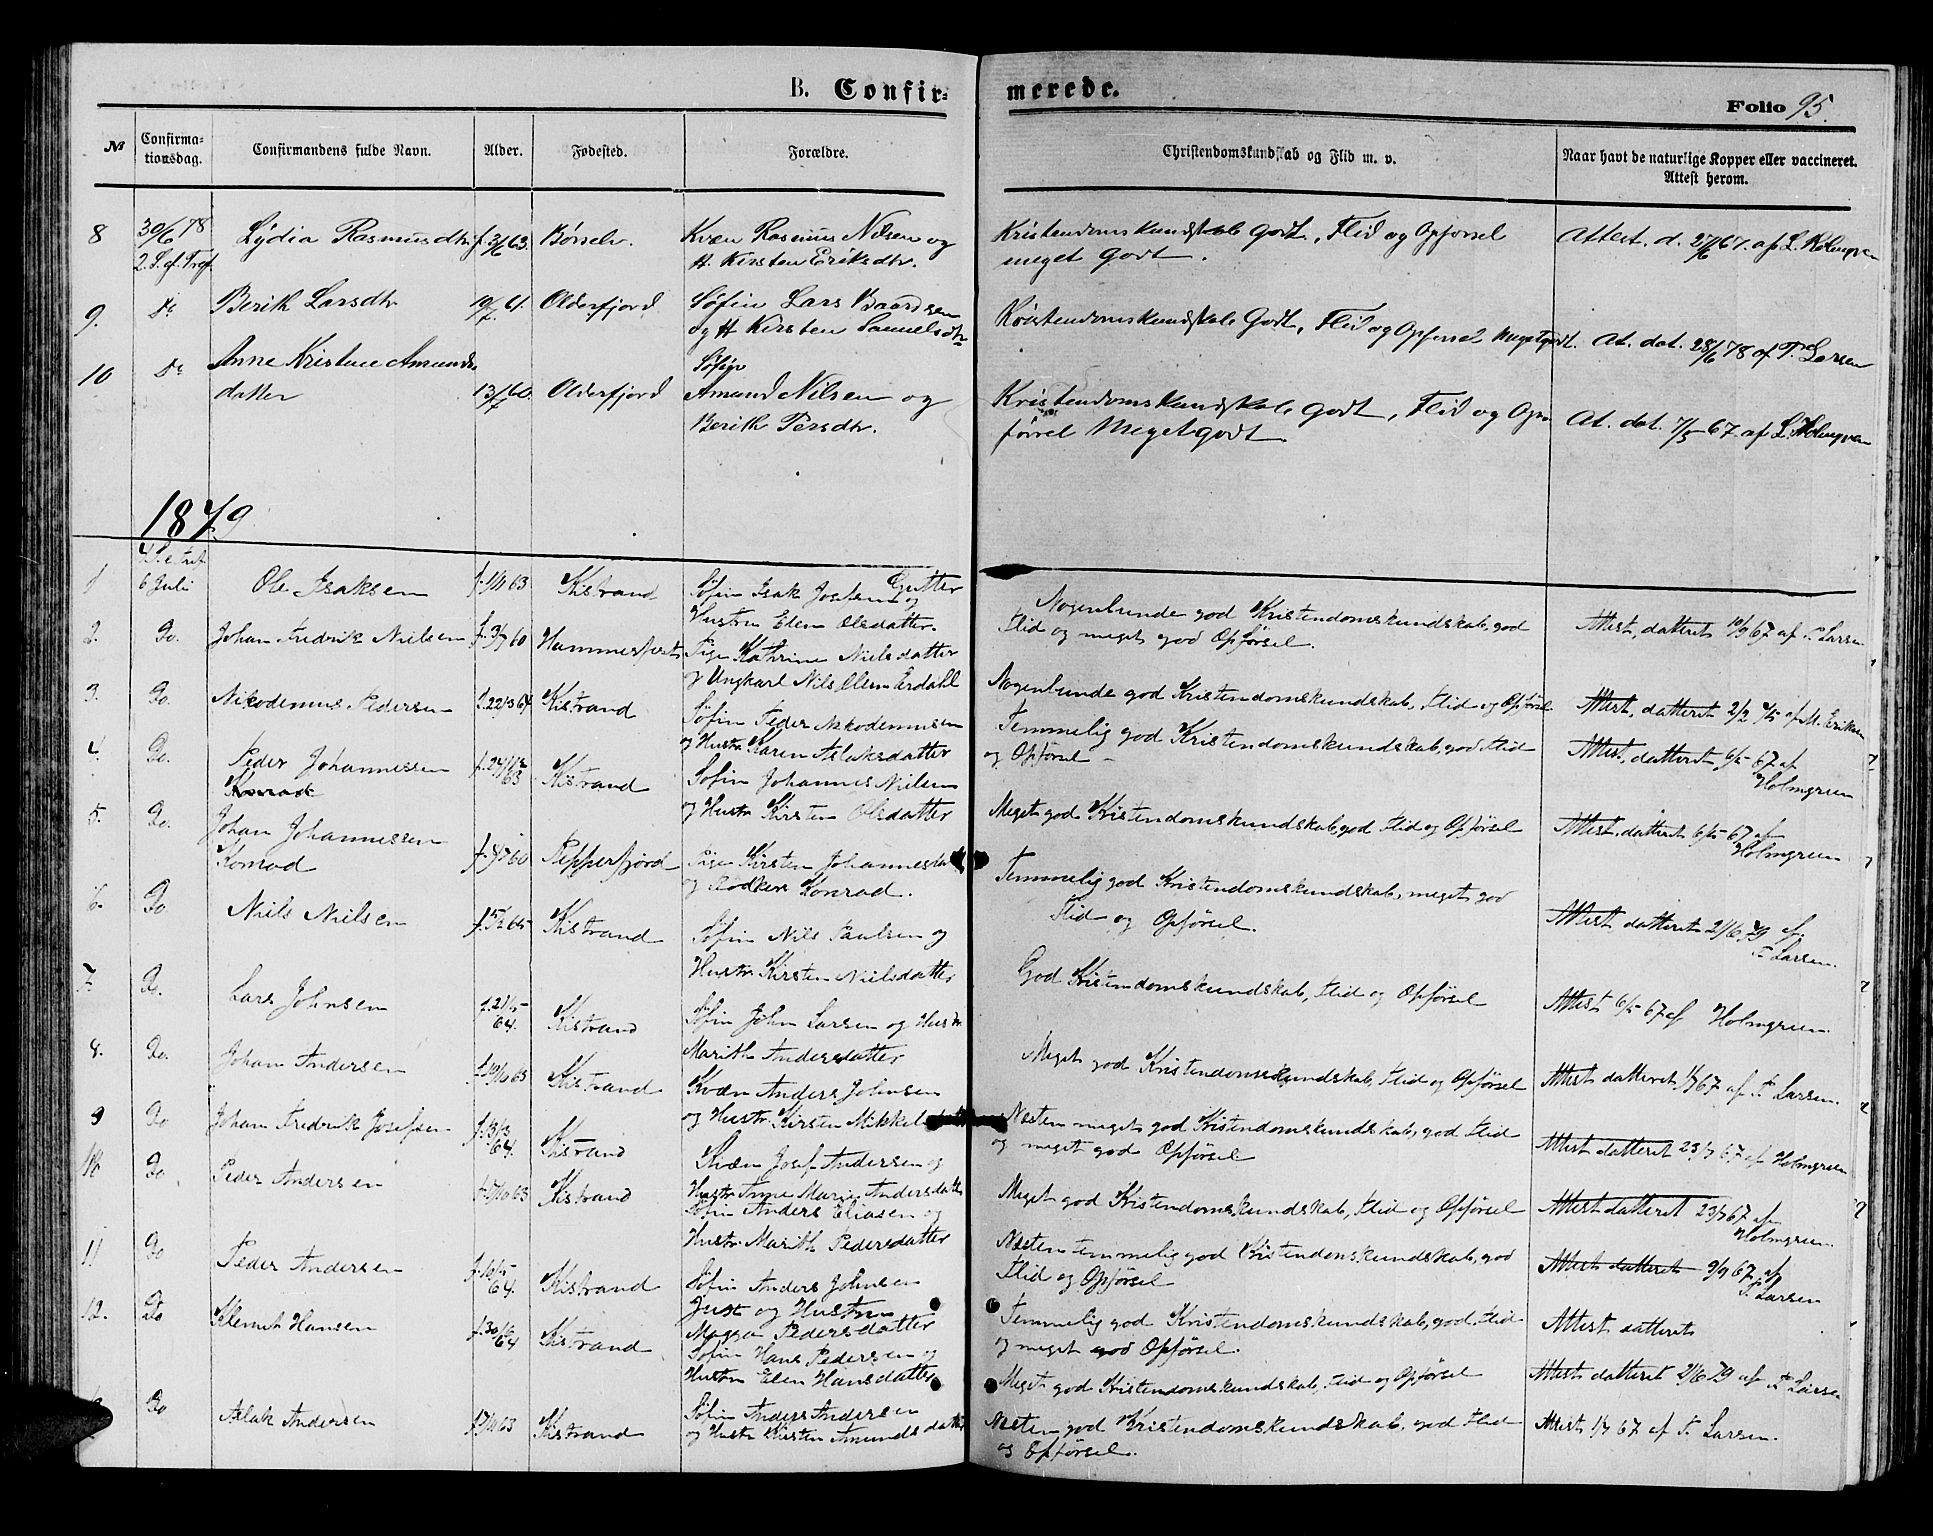 B. Confir-
merede.
Folio 95.
№
Confirma-
tionsdag.
Confirmandens fulde Navn.
Alder.
Fødested.
Forældre.
Christendomskundskab og Flid m. v.
Naar havt de naturlige Kopper eller vaccineret.
Attest herom.
8 30/6 78 Lydia Rasmusdtr. f. 3/6 63. Børselv. Kvæn Rasmus Nilsen og Kristendomskundskab Godt, Flid og Opførsel Attest. d. 27/6 67. af L. Holmgren
2. S. ef. Tref H. Kirsten Eriksdtr. meget Godt.
9. Do Berith Larsdtr 19/7 61. Olderfjord Søfin Lars Baardsen Kristendomskundskab Godt, Flid og Opførsel Megetgodt. At. dat. 28/6 78 af P. Larsen
og H Kirsten Samuelsdtr
10 Do Anne Kristine Amunds Søfin
datter 13/7 60. Olderfjord Amund Nilsen og Kristendomskundskab Godt, Flid og Op- At. dat. 7/5 67. af L. Holmgren
Berith Persdtr. førsel Megetgodt.
1879
4 S. e. Tref
Gutter
1 6 Juli Ole Isaksen f. 1/11 63 Kistrand Søfin Isak Josten og Nogenlunde god Kristendomskundskab, god Attest, datteret 10/9 67 af P. Larsen
Hustru Elen Olsdatter. Flid og meget god Opførsel.
2. Do. Johan Fredrik Nielsen f. 3/7 60 Hammerfest Pige Kathrine Nielsdatter Nogenlunde god Kristendomskundskab, Flid og Opførsel Attest, datteret 2/2 75 af M. Eriksen
og Ungkarl Nils Elem Erdahl
3. Do. Nikodemus Pedersen f. 22/3 64 Kistrand Søfin Peder Nikodemusen Temmelig god Kristendomskundskab, god Flid Attest, datteret 6/5 67 af Holmgreen
og Hustr. Karen Aslaksdatter og Opførsel
4. Do. Peder Johannessen f. 24/12 63 Kistrand Søfin Johannes Nielsen Meget god Kristendomskundskab, god Flid og Opførsel Attest, datteret 6/5 67 af Holmgreen
Konrad og Hustr. Kirsten Olsdatter
5. Do. Johan Johannessen
Konrad f. 9/7 60 Pepperfjord Pige Kirsten Johannesdtr Temmelig god Kristendomskundskab, meget god Attest datteret 21/6 79 af P. Larsen.
og Bødker Konrad. Flid og Opførsel.
6. Do Niels Nielsen f. 5/2 65 Kistrand Søfin Nils Paulsen og God Kristendomskundskab, Flid og Opførsel Attest 6/5 67 af Holmgreen.
Hustr. Kirsten Nielsdatter
7. Do. Lars Johnsen f. 21/5 64. Kistrand Søfin John Larsen og Hustr. Meget god Kristendomskundskab, Flid og Opførsel Attest datteret 1/7 67 af P. Larsen.
Marith Andersdatter
8. Do. Johan Andersen f. 19/10 63 Kistrand Kvæn Anders Johnsen Næsten meget god Kristendomskundskab, god Flid Attest datteret 23/7 67 af Holmgreen
og Hustr. Kirsten Mikkelsdatt og meget god Opførsel
9 Do Johan Fredrik Josefsen f. 13/3 64. Kistrand Kvæn Josef Andersen og Meget god Kristendomskundskab, Flid og Opførsel Attest datteret 23/7 67 af Holmgreen.
Hustr Anne Marie Andersdatt
10 Do Peder Andersen f. 17/10 63 Kistrand Søfin Anders Eliasen og Næsten temmelig god Kristendomskundskab, god Attest datteret 9/9 67 af P. Larsen
Hustr. Marith Pedersdatter Flid og Opførsel
11 Do Peder Andersen f. 16/5 64. Kistrand Søfin Anders Johnsen Temmelig god Kristendomskundskab, god Flid Attest datteret
Just og Hustru og meget god Opførsel.
Magga Pedersdatter
12. Do Klemet Hansen f. 30/6 64 Kistrand Søfin Hans Pedersen og Meget god Kristendomskundskab, Flid og Opførsel Attest datteret 21/6 79 af P. Larsen
Hustru Elen Hansdatter
Do Aslak Andersen f. 7/11 63 Kistrand Søfin Anders Andersen Næsten god Kristendomskundskab, god Flid Attest 1/7 67 af P. Larsen.
og Hustr Kirsten Amundsdatter og Opførsel.